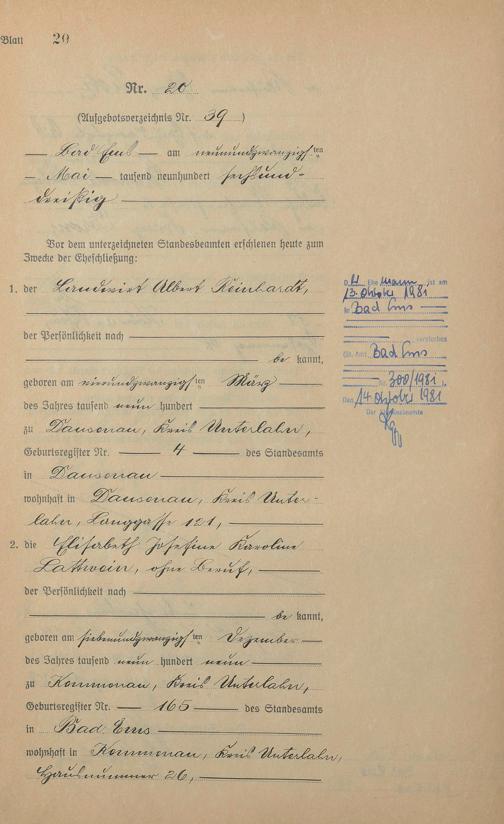 Blatt 20
Nr. 20
(Aufgebotsverzeichnis Nr. 39)
Bad Ems am neunundzwanzigsten
Mai tausend neunhundert sechsund-
dreißig
Vor dem unterzeichneten Standesbeamten erschienen heute zum
Zwecke der Eheschließung:
1. der Landwirt Albert Reinhardt,
der Persönlichkeit nach
be kannt,
geboren am vierundzwanzigsten März
des Jahres tausend neun hundert
zu Dausenau, Kreis Unterlahn,
Geburtsregister Nr. 4 des Standesamts
in Dausenau
wohnhaft in Dausenau, Kreis Unter-
lahn, Langgasse 121,
2. die Elisabeth Josefine Karoline
ohne Beruf,
der Persönlichkeit nach
be kannt,
geboren am siebenundzwanzigsten Dezember
des Jahres tausend neun hundert neun
zu Kemmenau, Kreis Unterlahn,
Geburtsregister Nr. 165 des Standesamts
in Bad Ems
wohnhaft in Kemmenau, Kreis Unterlahn,
Hausnummer 26,
Ehemann ist am
13. Oktober 1981
in Bad Ems
verstorben
Bad Ems
Nr. 300/1981.
Den 14. Oktober 1981
Der Standesbeamte